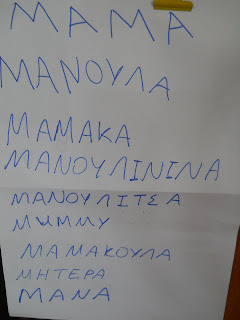 ΜΑΜΑ
ΜΑΝΟΥΛΑ
ΜΑΜΑΚΑ
ΜΑΝΟΥΛΙΝΙΝΑ
ΜΑΝΟΥΛΙΤΣΑ
MUMMY
ΜΑΜΑΚΟΥΛΑ
ΜΗΤΕΡΑ
ΜΑΝΑ